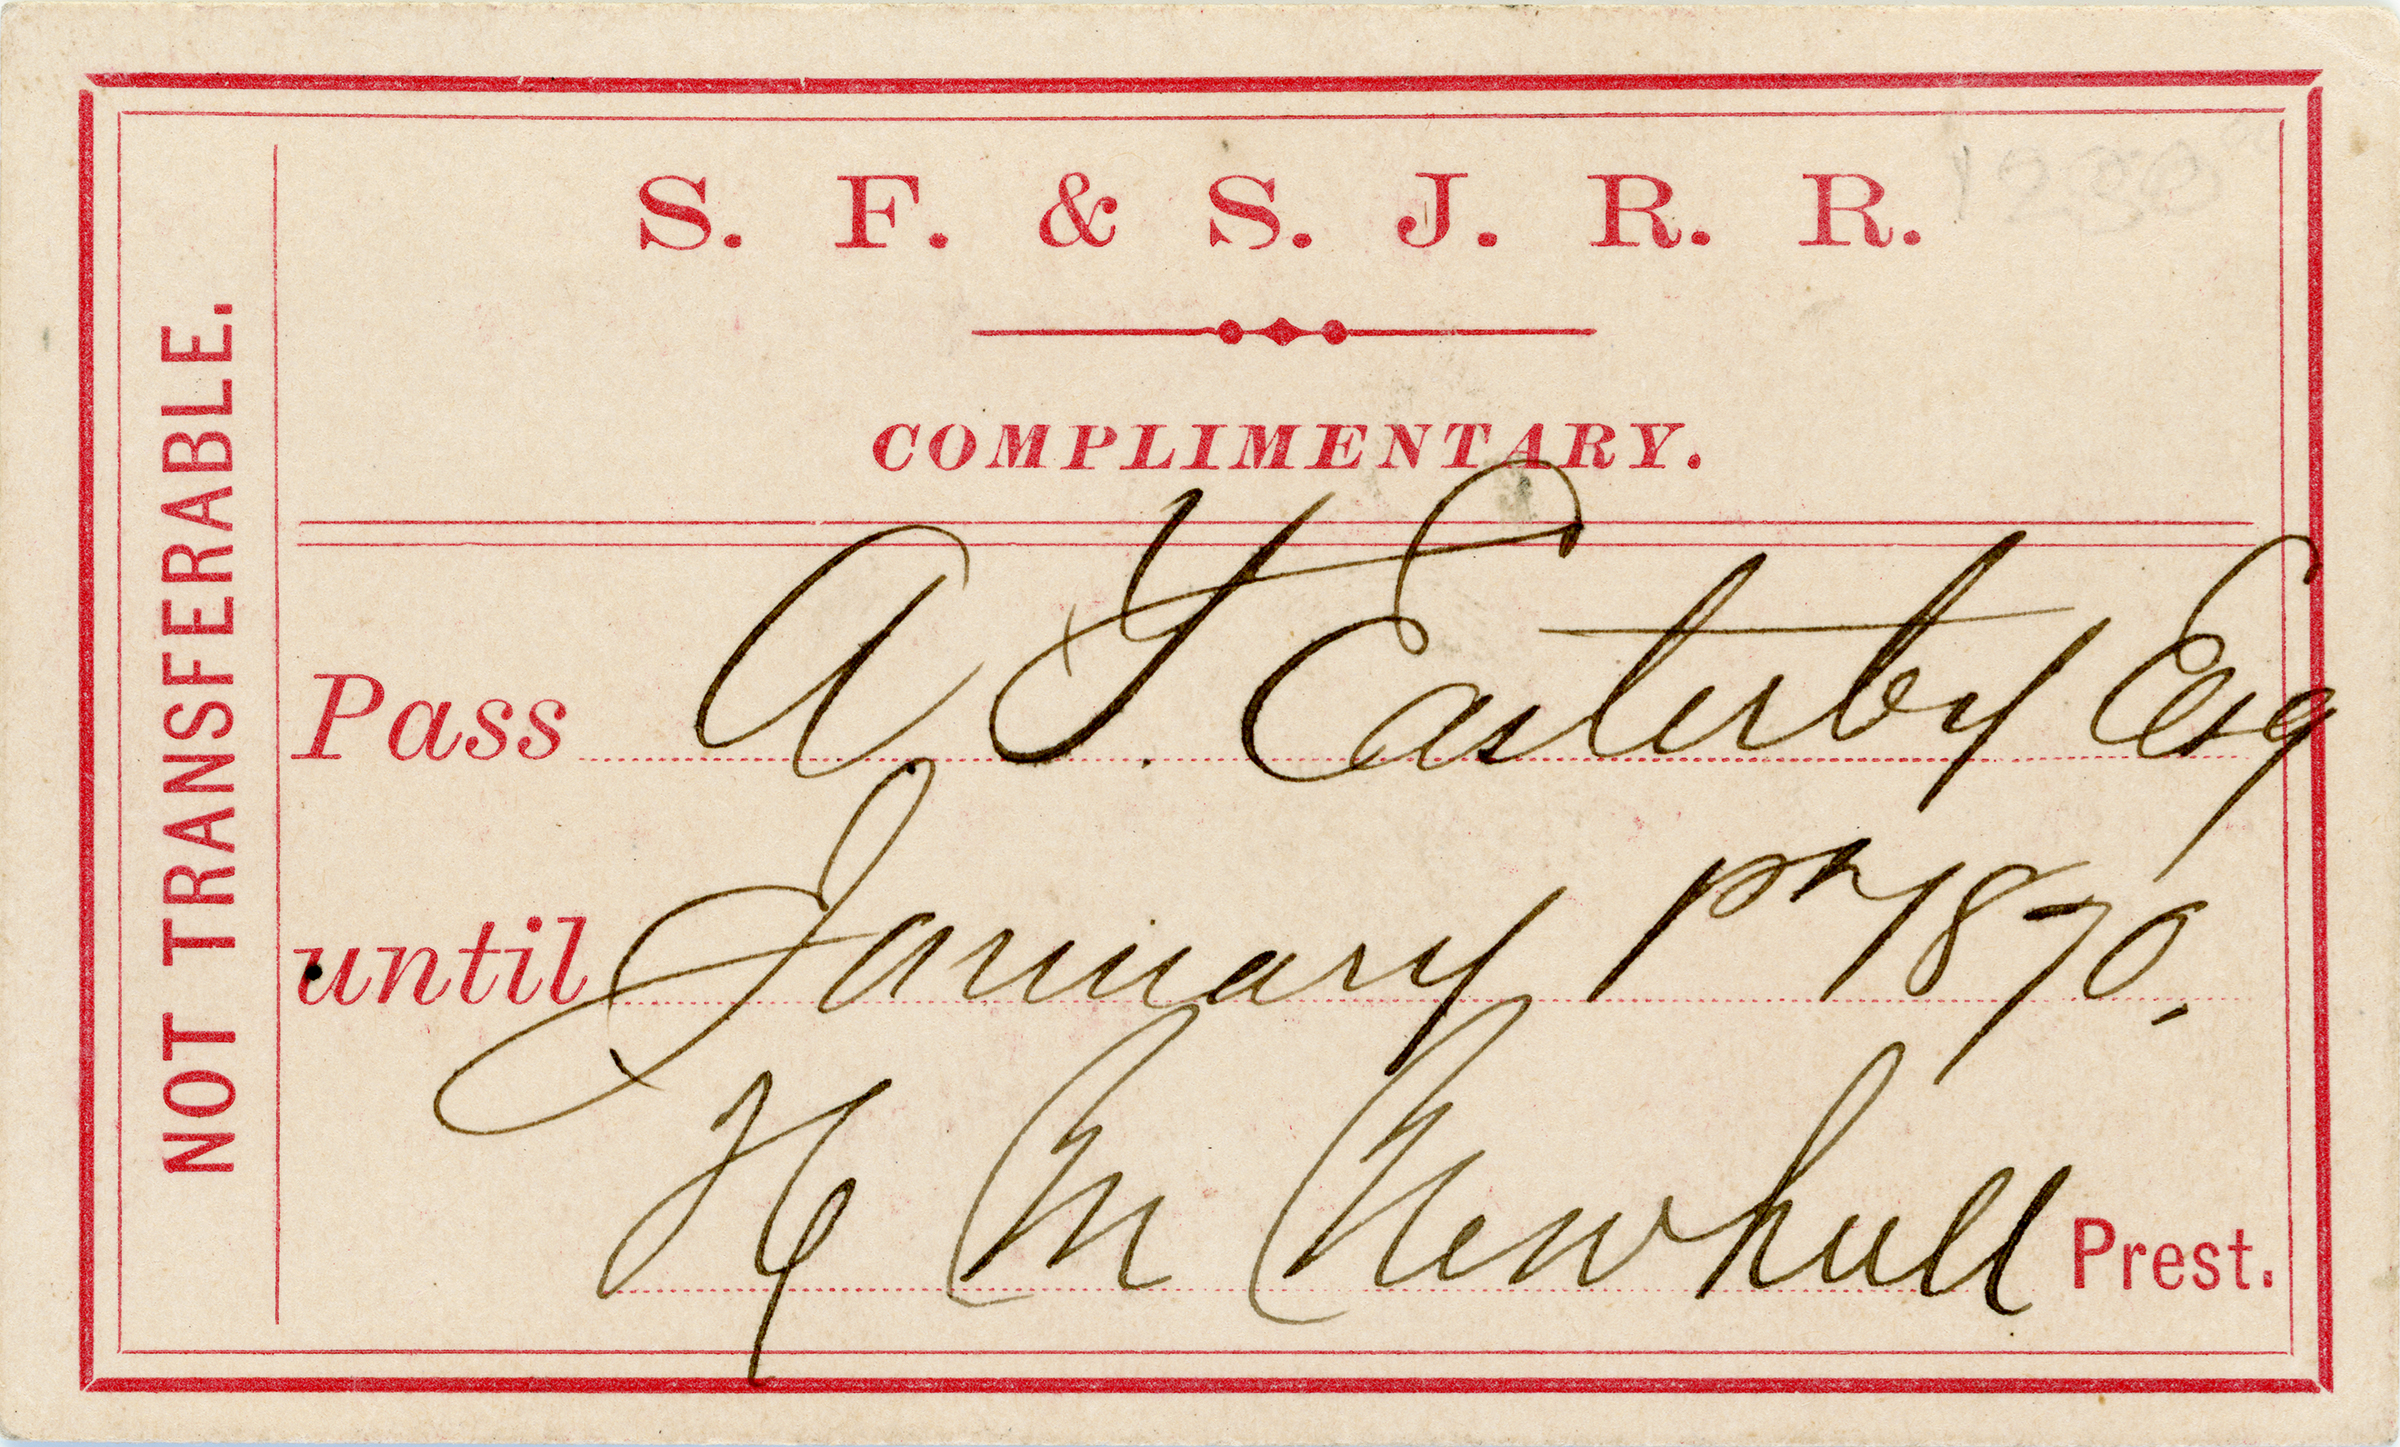 S. F. & S. J. R. R.
COMPLIMENTARY.
NOT TRANSFERABLE.
Pass A Y Easterby Esq
until January 1st 1870.
H M Newhall Prest.